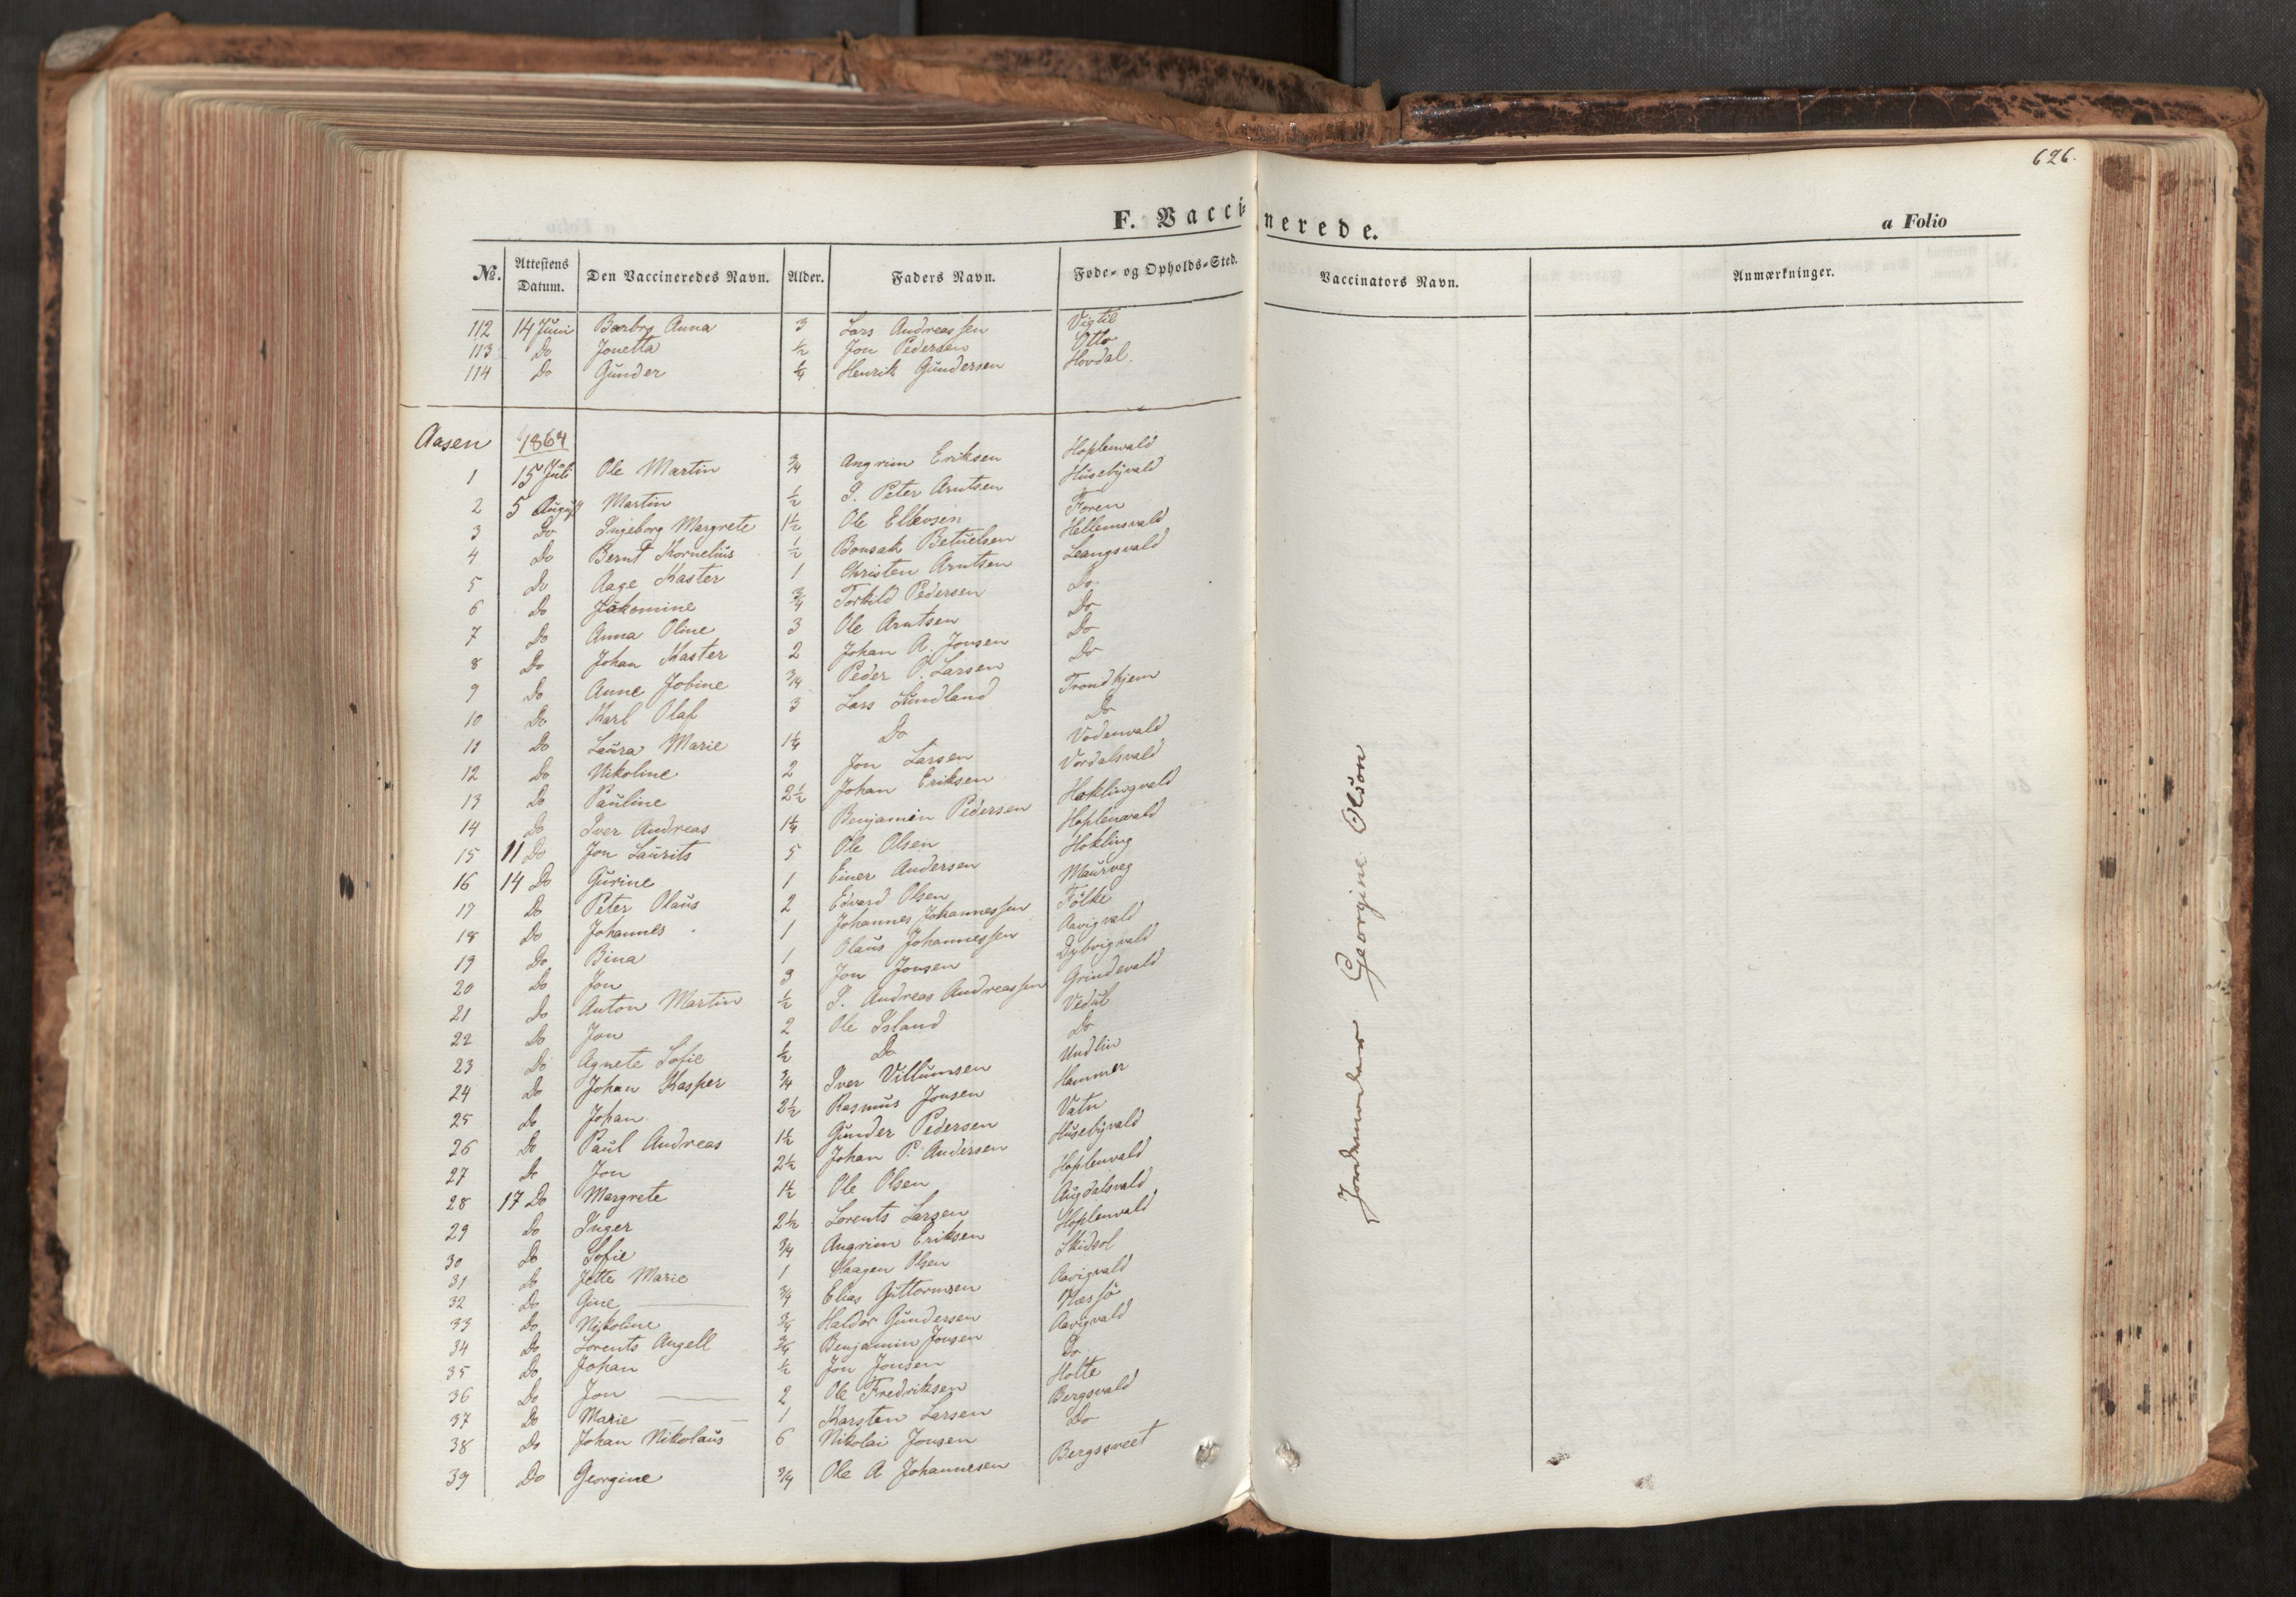 626.
F. Vaccinerede.
a Folio
No. Attestens Datum. Den Vaccineredes Navn. Alder. Faders Navn. Føde- og Opholds-Sted. Vaccinators Navn. Anmærkninger.
112 14 Juni Barbro Anna 3 Lars Andreassen Vigtil
113 Do Jonetta ½ Jon Pedersen Otto
114 Do Gunder ¼ Henrik Gundersen Hovdal.
Aasen 1864
1 15 Juli Ole Martin ¾ Angrim Eriksen Hoplenvald
2 5 August Martin ½ P. Peter Arntsen Husebyvald
3 Do Ingeborg Margrete 1½ Ole Ellevsen Foren
4 Do Bernt Kornelius ½ Bonsak Betuelsen Hellemsvald
5 Do Aage Kaster 1 Christen Arntsen Leangsvald
6 Do Jakomine ¾ Torkild Pedersen Do.
7 Do Anna Oline 3 Ole Arntsen Do
8 Do Johan Kaster 2 Johan A. Jonsen Do
9 Do Anne Jobine ¾ Peder O. Larsen Do
10 Do Karl Olaf 3 Lars Lundland Trondhjem
11 Do Laura Marie 1¼ Do Do
12 Do Nikoline 2 Jon Larsen Vodenvald
13 Do Pauline 2½ Johan Eriksen Vordalsvald
14 Do Iver Andreas 1¼ Benjamin Pedersen Hoklingvald
15 11 Do Jon Laurits 5 Ole Olsen Hoplenvald
16 14 Do Gurine 1 Einer Andersen Hokling
17 Do Peter Olaus 2 Edvard Olsen Maurveg
18 Do Johannes 1 Johannes Johannessen Fölke
19 Do Bina 1 Olaus Johannessen Aavigvald
20 Do Jon 3 Jon Jonsen Dybvigvald
21 Do Anton Martin ½ P. Andreas Andreassen Grindevald
22 Do Jon 2 Ole Island Vedul
23 Do Agnete Sofie ½ Do Do
24 Do Johan Kasper ¾ Iver Villumsen Undlin
25 Do Johan 2½ Rasmus Jonsen Hammer
26 Do Paul Andreas 1½ Gunder Pedersen Vatn
27 Do Jon 2½ Johan P. Andersen Husebyvald
28 17 Do Margrete 1½ Ole Olsen Hoplenvald
29 Do Inger 2½ Lorents Larsen Augdalsvald
30 Do Sofie ¾ Angrim Eriksen Hoplenvald
31 Do Jette Marie 1 Haagen Olsen Skidsol
32 Do Gine ¾ Elias Guttormsen Aavigvald
33 Do Nikoline ¾ Haldor Gundersen
34 Do Lorents Angell ¾ Benjamin Jonsen Aavigvald
35 Do Johan ½ Jon Jonsen Do
36 Do Jon 2 Ole Fredriksen Holte
37 Do Marie 1 Karsten Larsen Bergsvald
38 Do Johan Nikolaus 6 Nikolai Jonsen Do
39 Do Georgine ¾ Ole A Johannesen
Jordemoder Georgine Olson